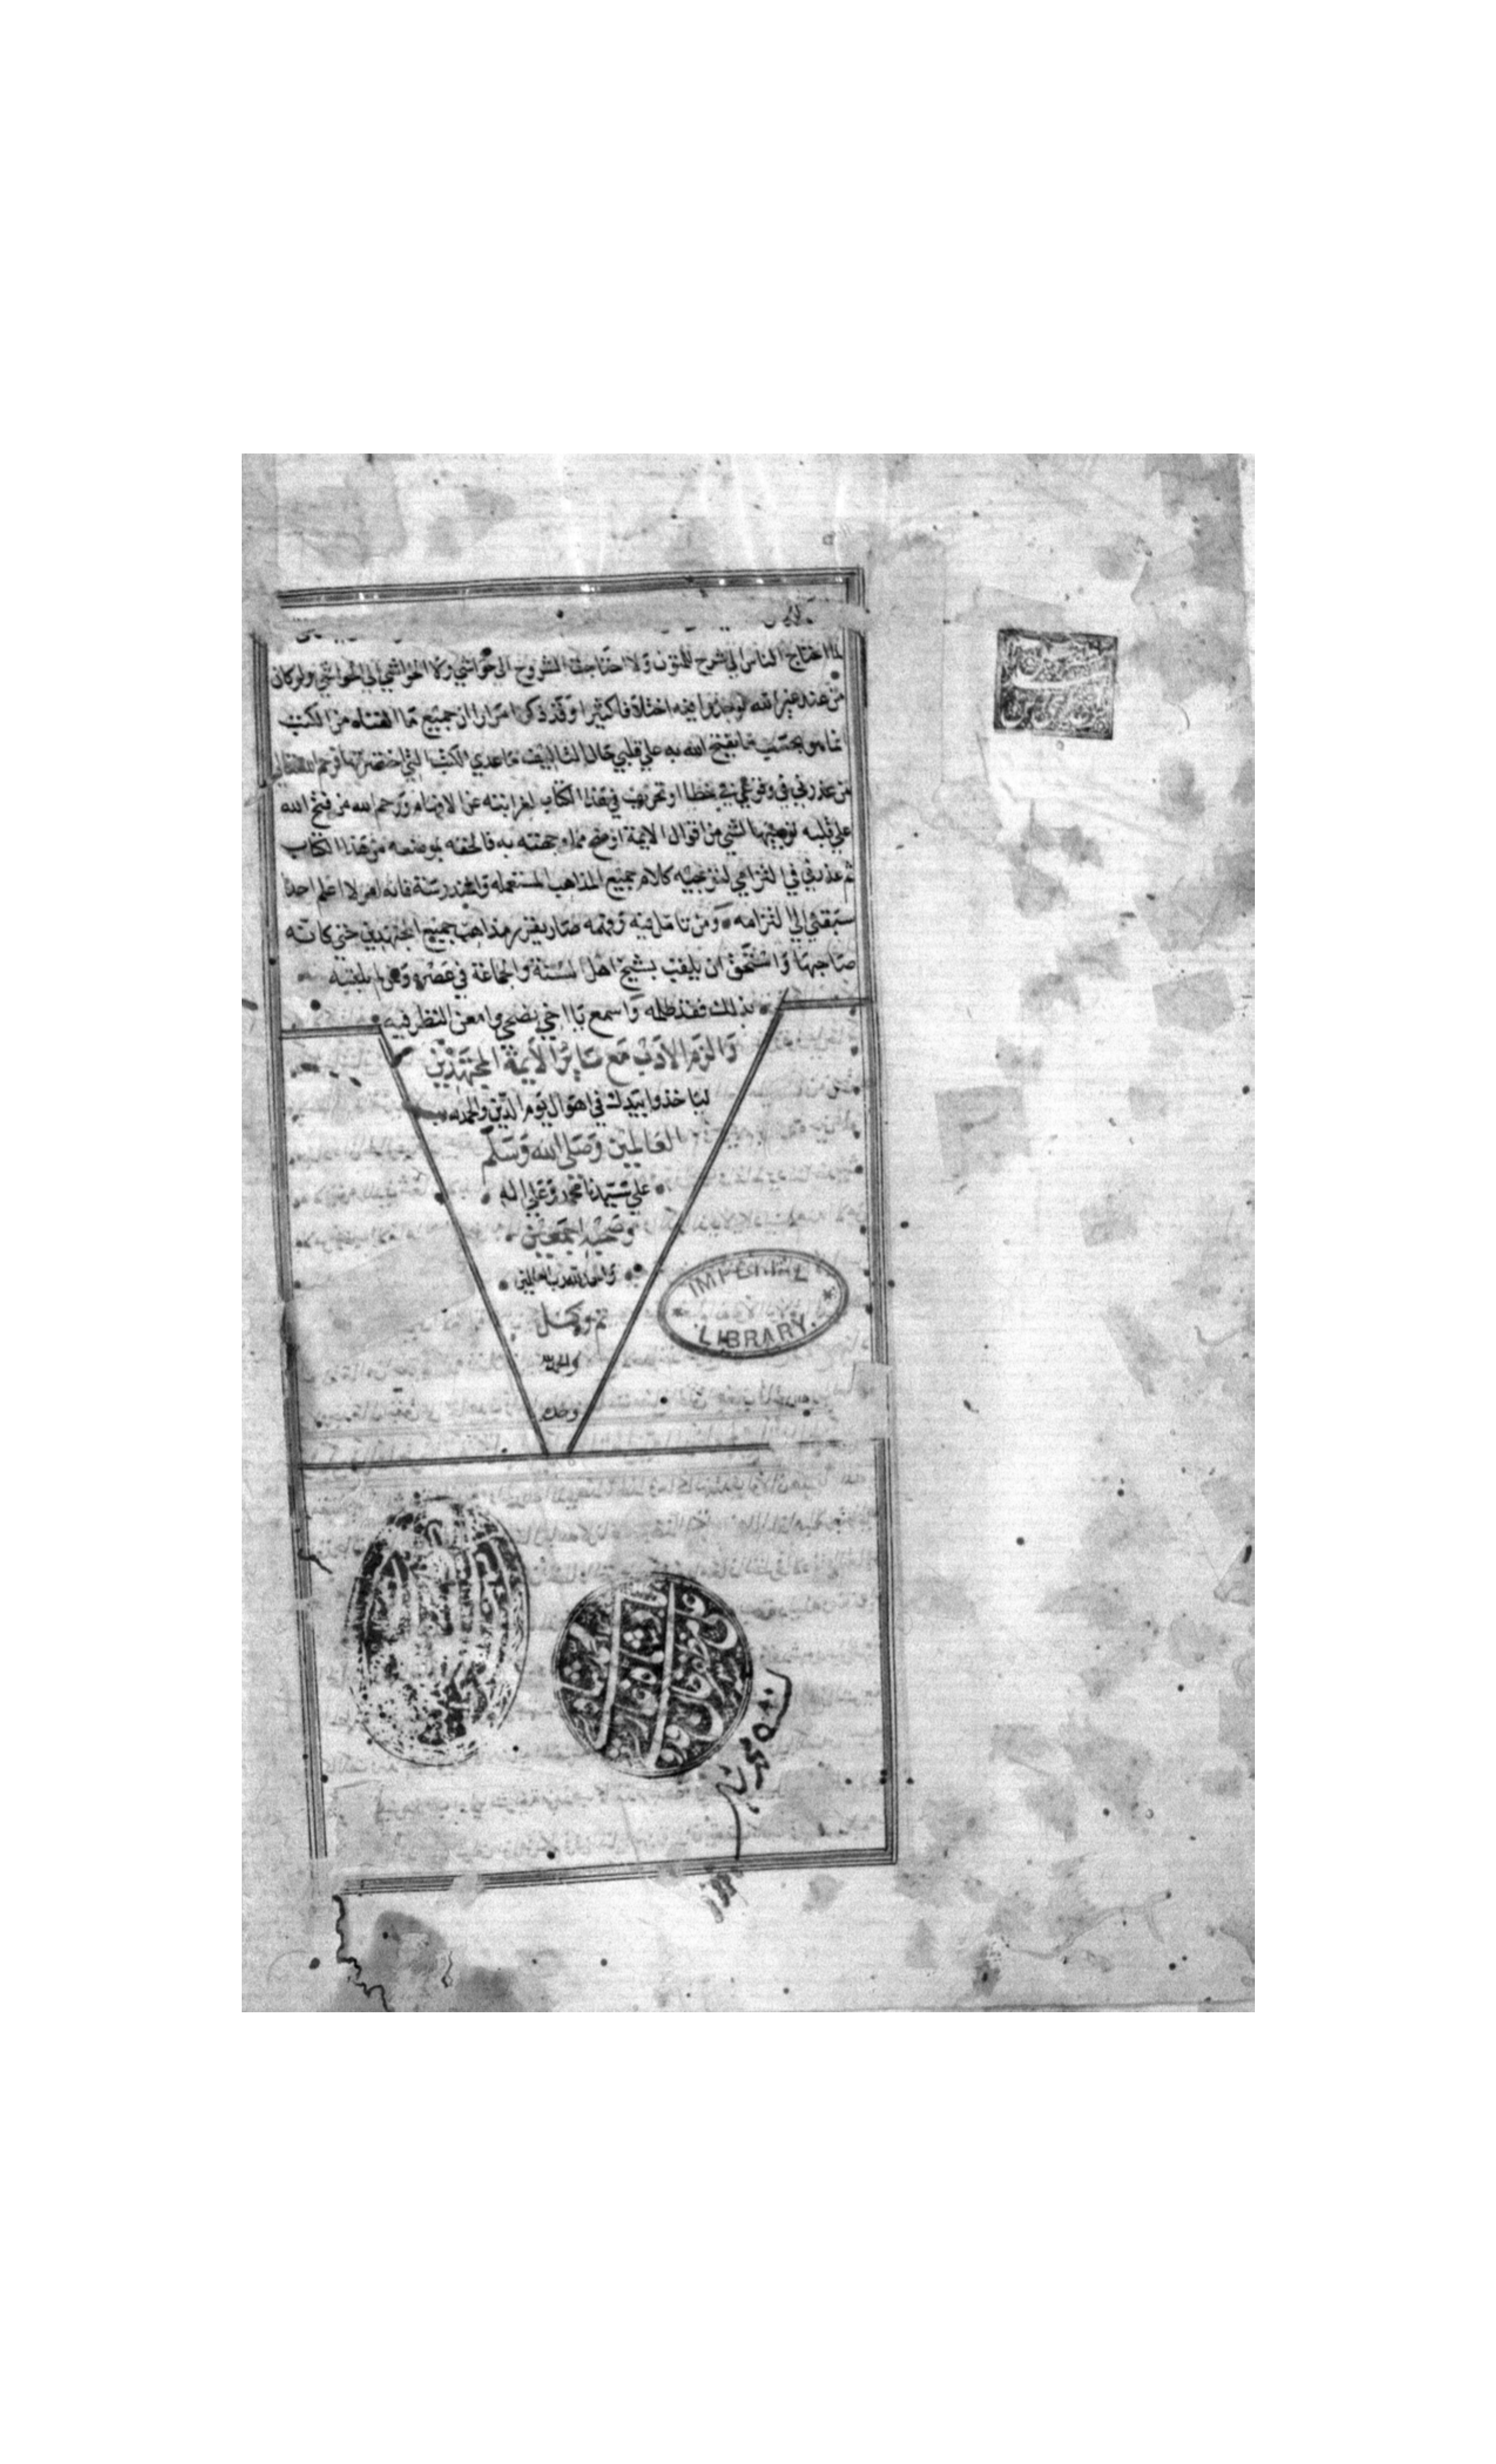 لما احتاج الناس الي شرح المتون ولا احتاجت الشروح الي حواشي ولا الحواشي الي الحواشي ولو كان
من عند غير الله لوجدوا فيه اختلافا كثيرا وقد ذكرنا مرارا ان جميع ما الفناه من الكتب
انما هو بحسب ما يفتح الله به علي قلبي حال التاليف ما عدي الكتب التي اختصرتها فرحم الله تعالي
من عذرني في وقوعي في خطا او تحريف في هذا الكتاب لغرابته عن الافهام ورحم الله من فتح الله
علي قلبه توجيها لشي من اقوال الايمة اوضح مما وجهته به فالحقه بموضعه من هذا الكتاب
ثم عذرني في التزامي لتوجيه كلام جميع المذاهب المستعملة والمندرسة فانه امر لا اعلم احدا
سبقني الي التزامه ومن تامل فيه وفهمه صار يقرر مذاهب جميع المجتهدين حتي كانه
صاحبها واستحق ان يلقب بشيخ اهل السنة والجماعة في عصره ومن لم يلقبه
بذلك فقد ظلمه واسمع يا اخي نصحي وامعن النظر فيه
والزم الادب مع ساير الايمة المجتهدين
لياخذوا بيدك في اهوال يوم الدين والحمد لله رب
العالمين وصلى الله وسلم
علي سيدنا محمد وعلي اله
وصحبه اجمعين
والحمد لله رب العالمين
تم وكمل
والحمد لله
وحده
IMPERIAL
LIBRARY